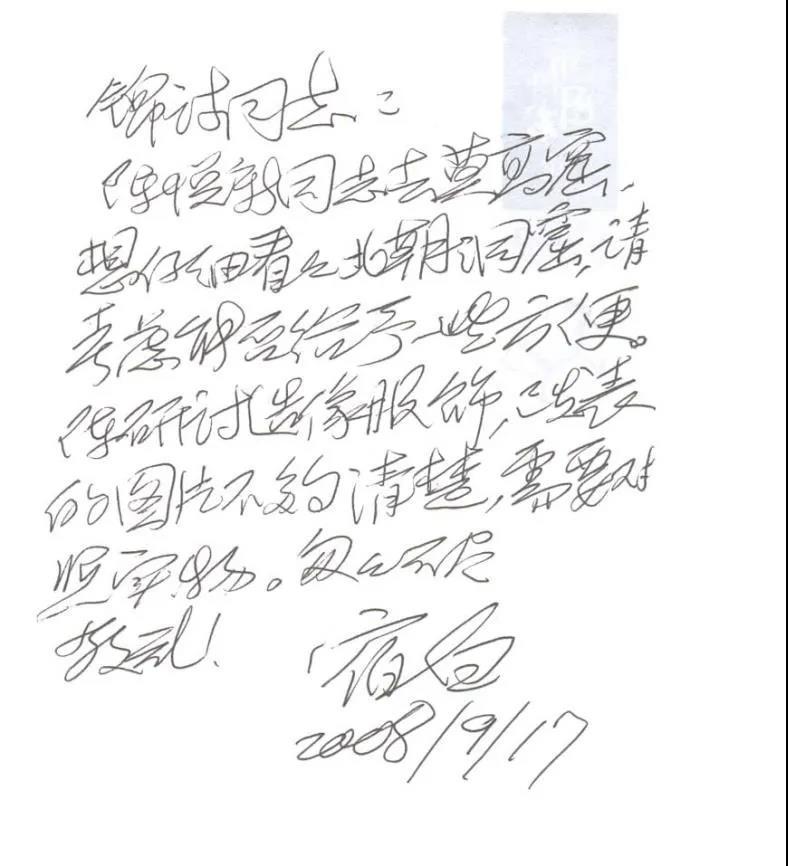 锦诗同志:
陈悦新同志去莫高窟,
想仔细看看北朝洞窟,请
考虑能否给予一些方便。
陈研讨造像服饰,已发表
的图片不够清楚,需要对
照实物。匆匆不尽
敬礼!
宿白
2008/9/17